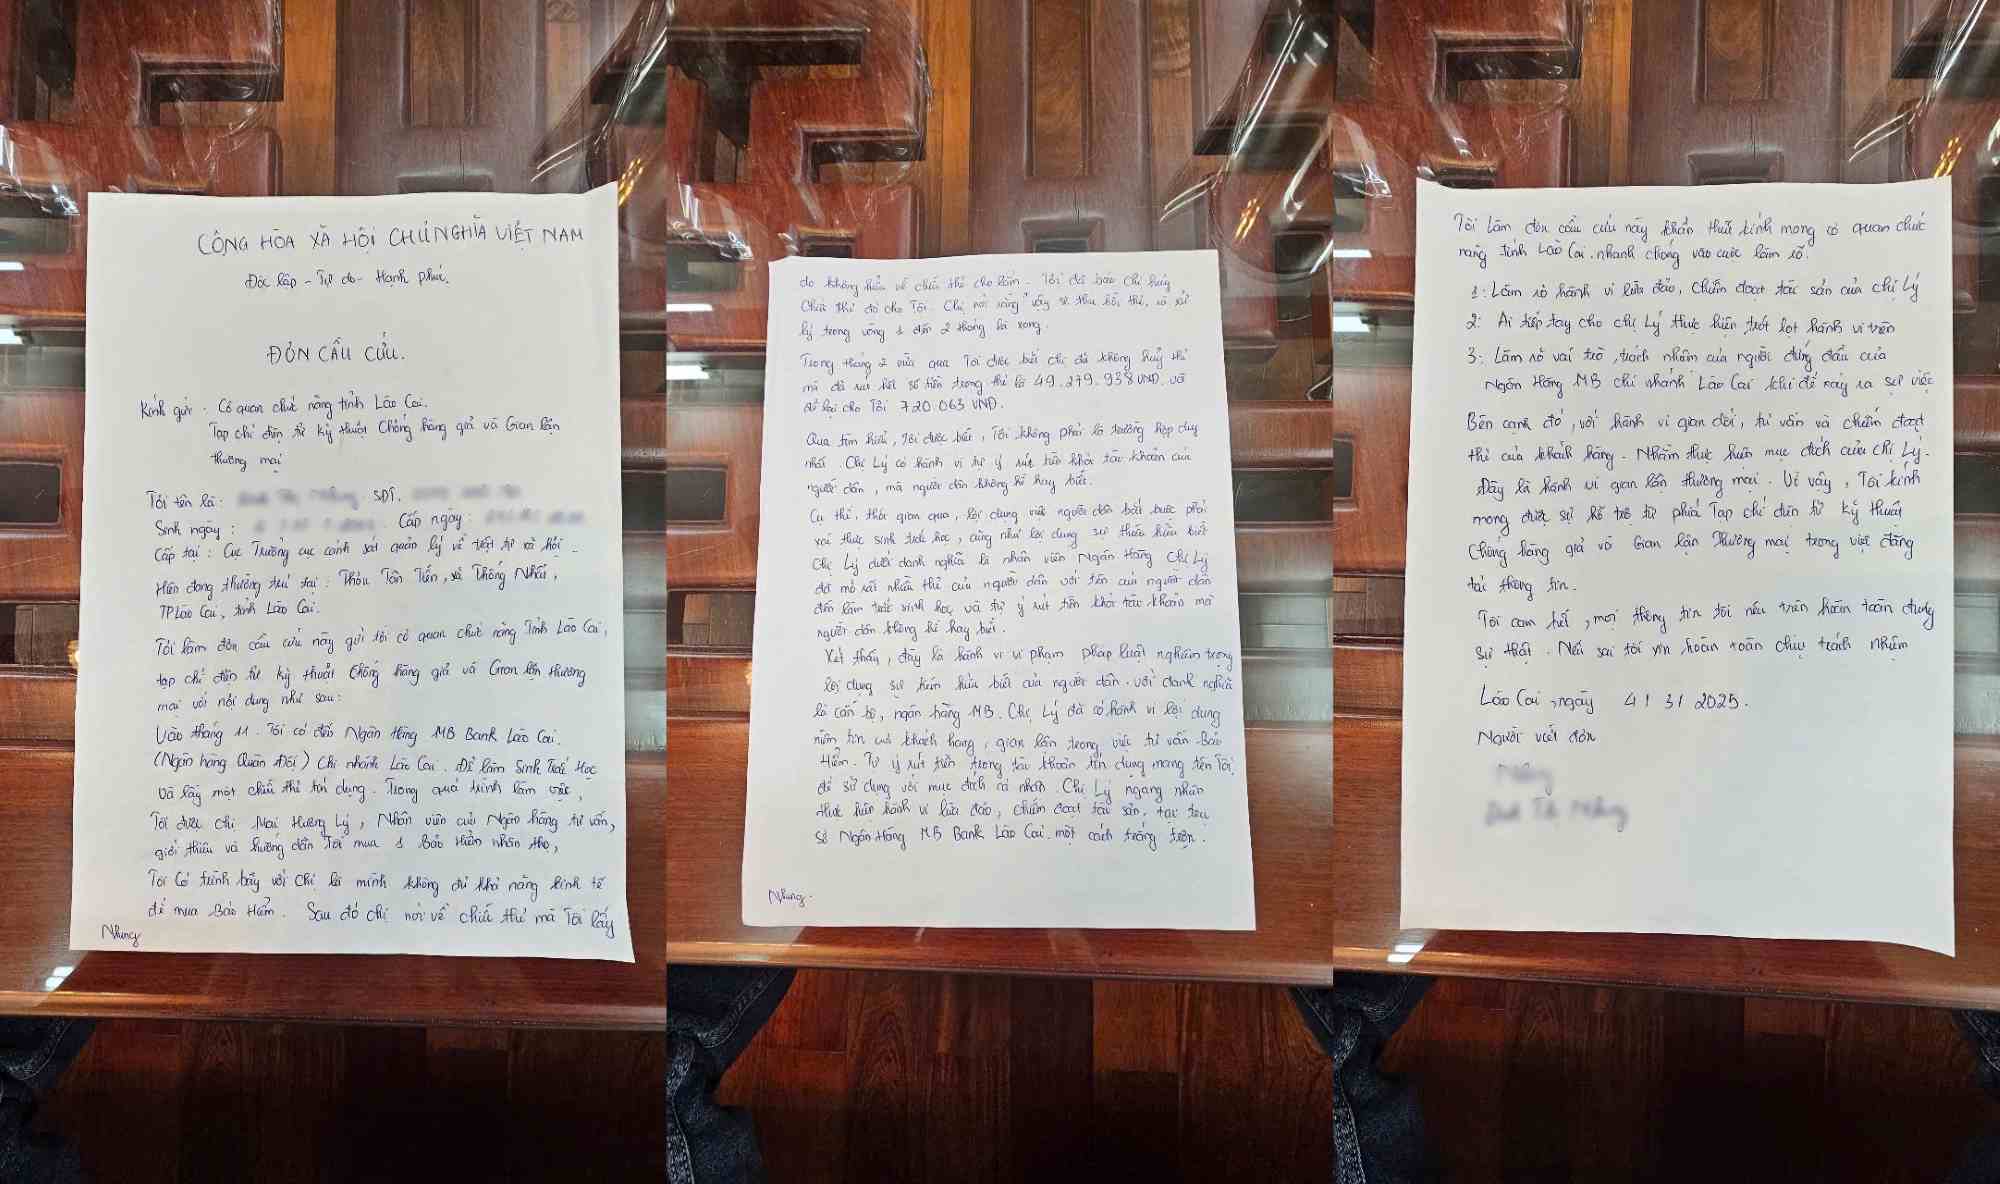 CỘNG HÒA XÃ HỘI CHỦ NGHĨA VIỆT NAM
Độc lập - Tự do - Hạnh phúc.
ĐƠN CẦU CỨU.
Kính gửi. Cơ quan chức năng tỉnh Lào Cai.
Tạp chí điện tử kỹ thuật Chống hàng giả và Gian lận
thương mại
Tôi tên là: SĐT.
Sinh ngày: Cấp ngày:
Cấp tại: Cục Trưởng cục cảnh sát quản lý về trật tự xã hội -
Hiện đang thường trú tại: Thôn Tân Tiến, xã Thống Nhất,
TP Lào Cai, tỉnh Lào Cai.
Tôi làm đơn cầu cứu này gửi tới cơ quan chức năng Tỉnh Lào Cai,
tạp chí điện tử kỹ thuật Chống hàng giả và Gian lận thương
mại với nội dung như sau:
Vào tháng 11. Tôi có đến Ngân Hàng MB Bank Lào Cai.
(Ngân hàng Quân Đội) Chi nhánh Lào Cai. Để làm Sinh Trắc Học
và lấy một chiếc thẻ tín dụng. Trong quá trình làm việc,
Tôi được chị Mai Hương Lý, Nhân viên của Ngân hàng tư vấn,
giới thiệu và hướng dẫn Tôi mua 1 Bảo Hiểm nhân thọ,
Tôi Có trình bày với Chị là mình không đủ khả năng kinh tế
để mua Bảo Hiểm. Sau đó chị nói về chiếc thẻ mà Tôi lấy
Nhung
do không hiểu về chiếc thẻ cho lắm. Tôi đã bảo Chị hủy
Chiếc thẻ đó cho Tôi. Chị nói rằng "ấy sẽ thu hồi thẻ, và xử
lý trong vòng 1 đến 2 tháng là xong.
Trong tháng 2 vừa qua Tôi được biết chị đã không huỷ thẻ
mà đã rút hết số tiền trong thẻ là 49.279.938 VND. và
để lại cho Tôi 720.063 VND.
Qua tìm hiểu, Tôi được biết, Tôi không phải là trường hợp duy
nhất. Chị Lý có hành vi tự ý rút tiền khỏi tài khoản của
người dân, mà người dân không hề hay biết.
Cụ thể, thời gian qua, lợi dụng việc người dân bắt buộc phải
xác thực sinh trắc học, cũng như lợi dụng sự thiếu hiểu biết
Chị Lý dưới danh nghĩa là nhân viên Ngân Hàng Chị Lý
đã mở rất nhiều thẻ của người dân với tên của người dân
đến làm trắc sinh học và tự ý rút tiền khỏi tài khoản mà
người dân không hề hay biết.
Xét thấy, đây là hành vi vi phạm pháp luật nghiêm trọng
lợi dụng sự thiếu hiểu biết của người dân. với danh nghĩa
là cán bộ, ngân hàng MB. Chị Lý đã có hành vi lợi dụng
niềm tin của khách hàng, gian lận trong việc tư vấn Bảo
Hiểm. Tự ý rút tiền trong tài khoản tín dụng mang tên Tôi,
để sử dụng với mục đích cá nhân. Chị Lý ngang nhiên
thực hiện hành vi lừa đảo, chiếm đoạt tài sản, tại trụ
sở Ngân Hàng MB Bank Lào Cai. một cách trắng trợn.
Nhung.
Tôi Làm đơn cầu cứu này khẩn thiết kính mong cơ quan chức
năng tỉnh Lào Cai. nhanh chóng vào cuộc làm rõ.
1: Làm rõ hành vi lừa đảo, Chiếm đoạt tài sản của chị Lý
2: Ai tiếp tay cho chị Lý thực hiện trót lọt hành vi trên
3: Làm rõ vai trò, trách nhiệm của người đứng đầu của
Ngân Hàng MB chi nhánh Lào Cai khi để xảy ra sự việc
Bên cạnh đó, với hành vi gian dối, tư vấn và chiếm đoạt
thẻ của khách hàng. Nhằm thực hiện mục đích của chị Lý.
Đây là hành vi gian lận thương mại. Vì vậy, Tôi kính
mong được sự hỗ trợ từ phía Tạp chí điện tử Kỹ thuật
Chống hàng giả và Gian lận Thương mại trong việc đăng
tải thông tin.
Tôi cam kết, mọi thông tin tôi nêu trên hoàn toàn đúng
sự thật. Nếu sai tôi xin hoàn toàn chịu trách nhiệm
Lào Cai, ngày 4/3/2025.
Người viết đơn